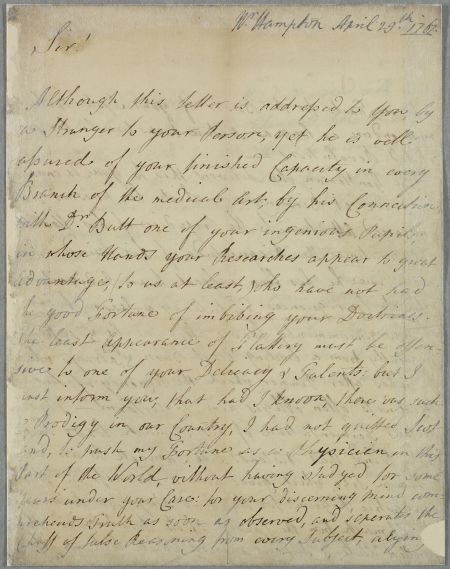 Wr. Hampton April 29.th 176
Sir!
Although this Letter is addressed to You by
a Stranger to your Person, yet he is well
assured of your finished Capacity in every
Branch of the medical Art, by his Connexion
with Dr Butt one of your ingenious Pupils
in whose Hands your Researches appear to great
Advantage, to us at least, who have not had
the good Fortune of imbibing your Doctrines.
The least Appearance of Flattery must be offen
sive to one of your Delicacy & Talents: but I
must inform you, that had I known, there was such
a Prodigy in our Country, I had not quitted Scot
land, to push my Fortune as a Physicien in this
Part of the World, without having studyed for some
Years under your Care: for your discerning mind com
prehends Truth as soon as observed, and seperates the
Chaff of false Reasoning from every Subject, relying